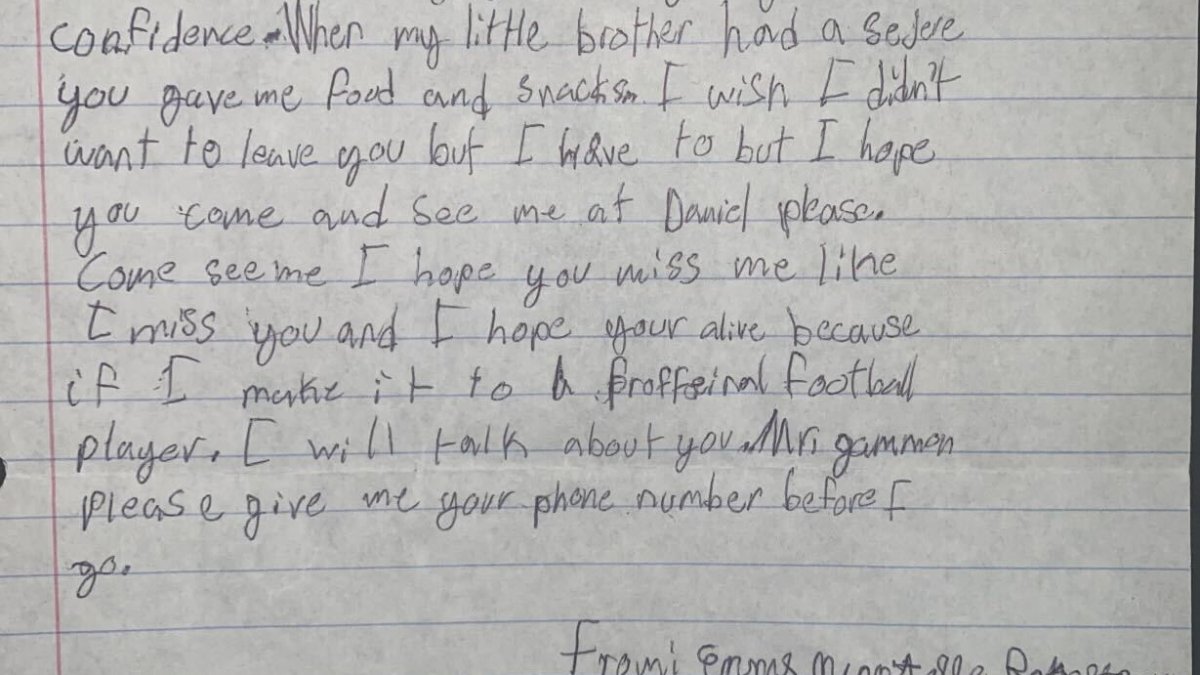 confidence. When my little brother had a sejere
you gave me food and snacks. I wish I didn't
want to leave you but I have to but I hope
you come and see me at Daniel please.
Come see me I hope you miss me like
I miss you and I hope your alive because
if I make it to a proffeinal football
player. I will talk about you. Mr. gammon
please give me your phone number before I
go.
From: